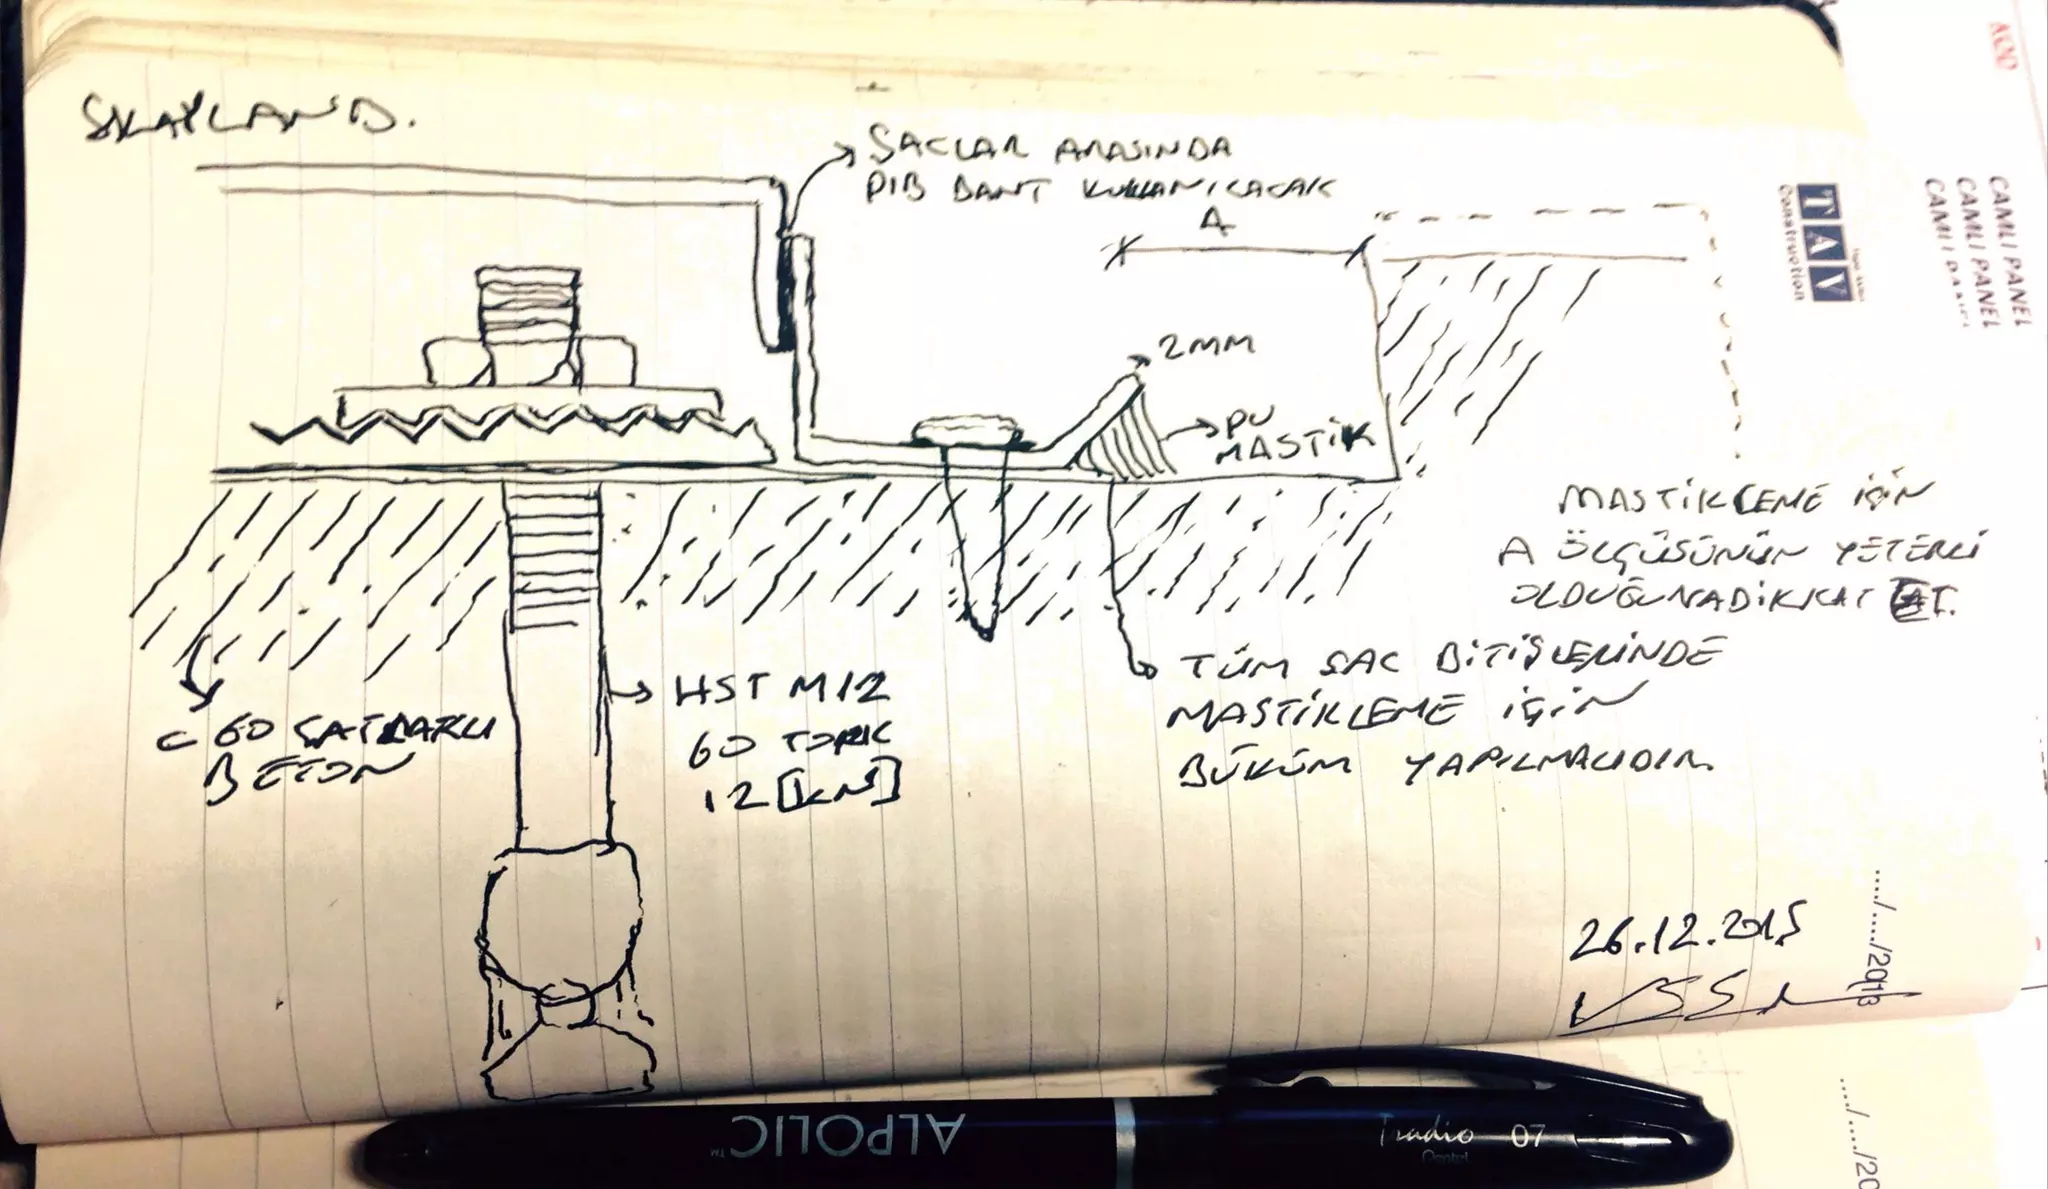 SKAYLAND.
SACLAR ARASINDA
PIB BANT KULLANILACAK
A
2MM
PU
MASTİK
MASTİKLEME İÇİN
A ÖLÇÜSÜNÜN YETERLİ
OLDUĞUNA DİKKAT ET.
TÜM SAC BİTİŞLERİNDE
MASTİKLEME İÇİN
BÜKÜM YAPILMALIDIR.
HST M12
60 TORK
12 [kN]
C 60 ÇATLAKLI
BETON
26.12.2015
TAV
Construction
CAMLI PANEL
CAMLI PANEL
..../..../2013
..../..../20
ALPOLIC™
Tradio 07
Pentel